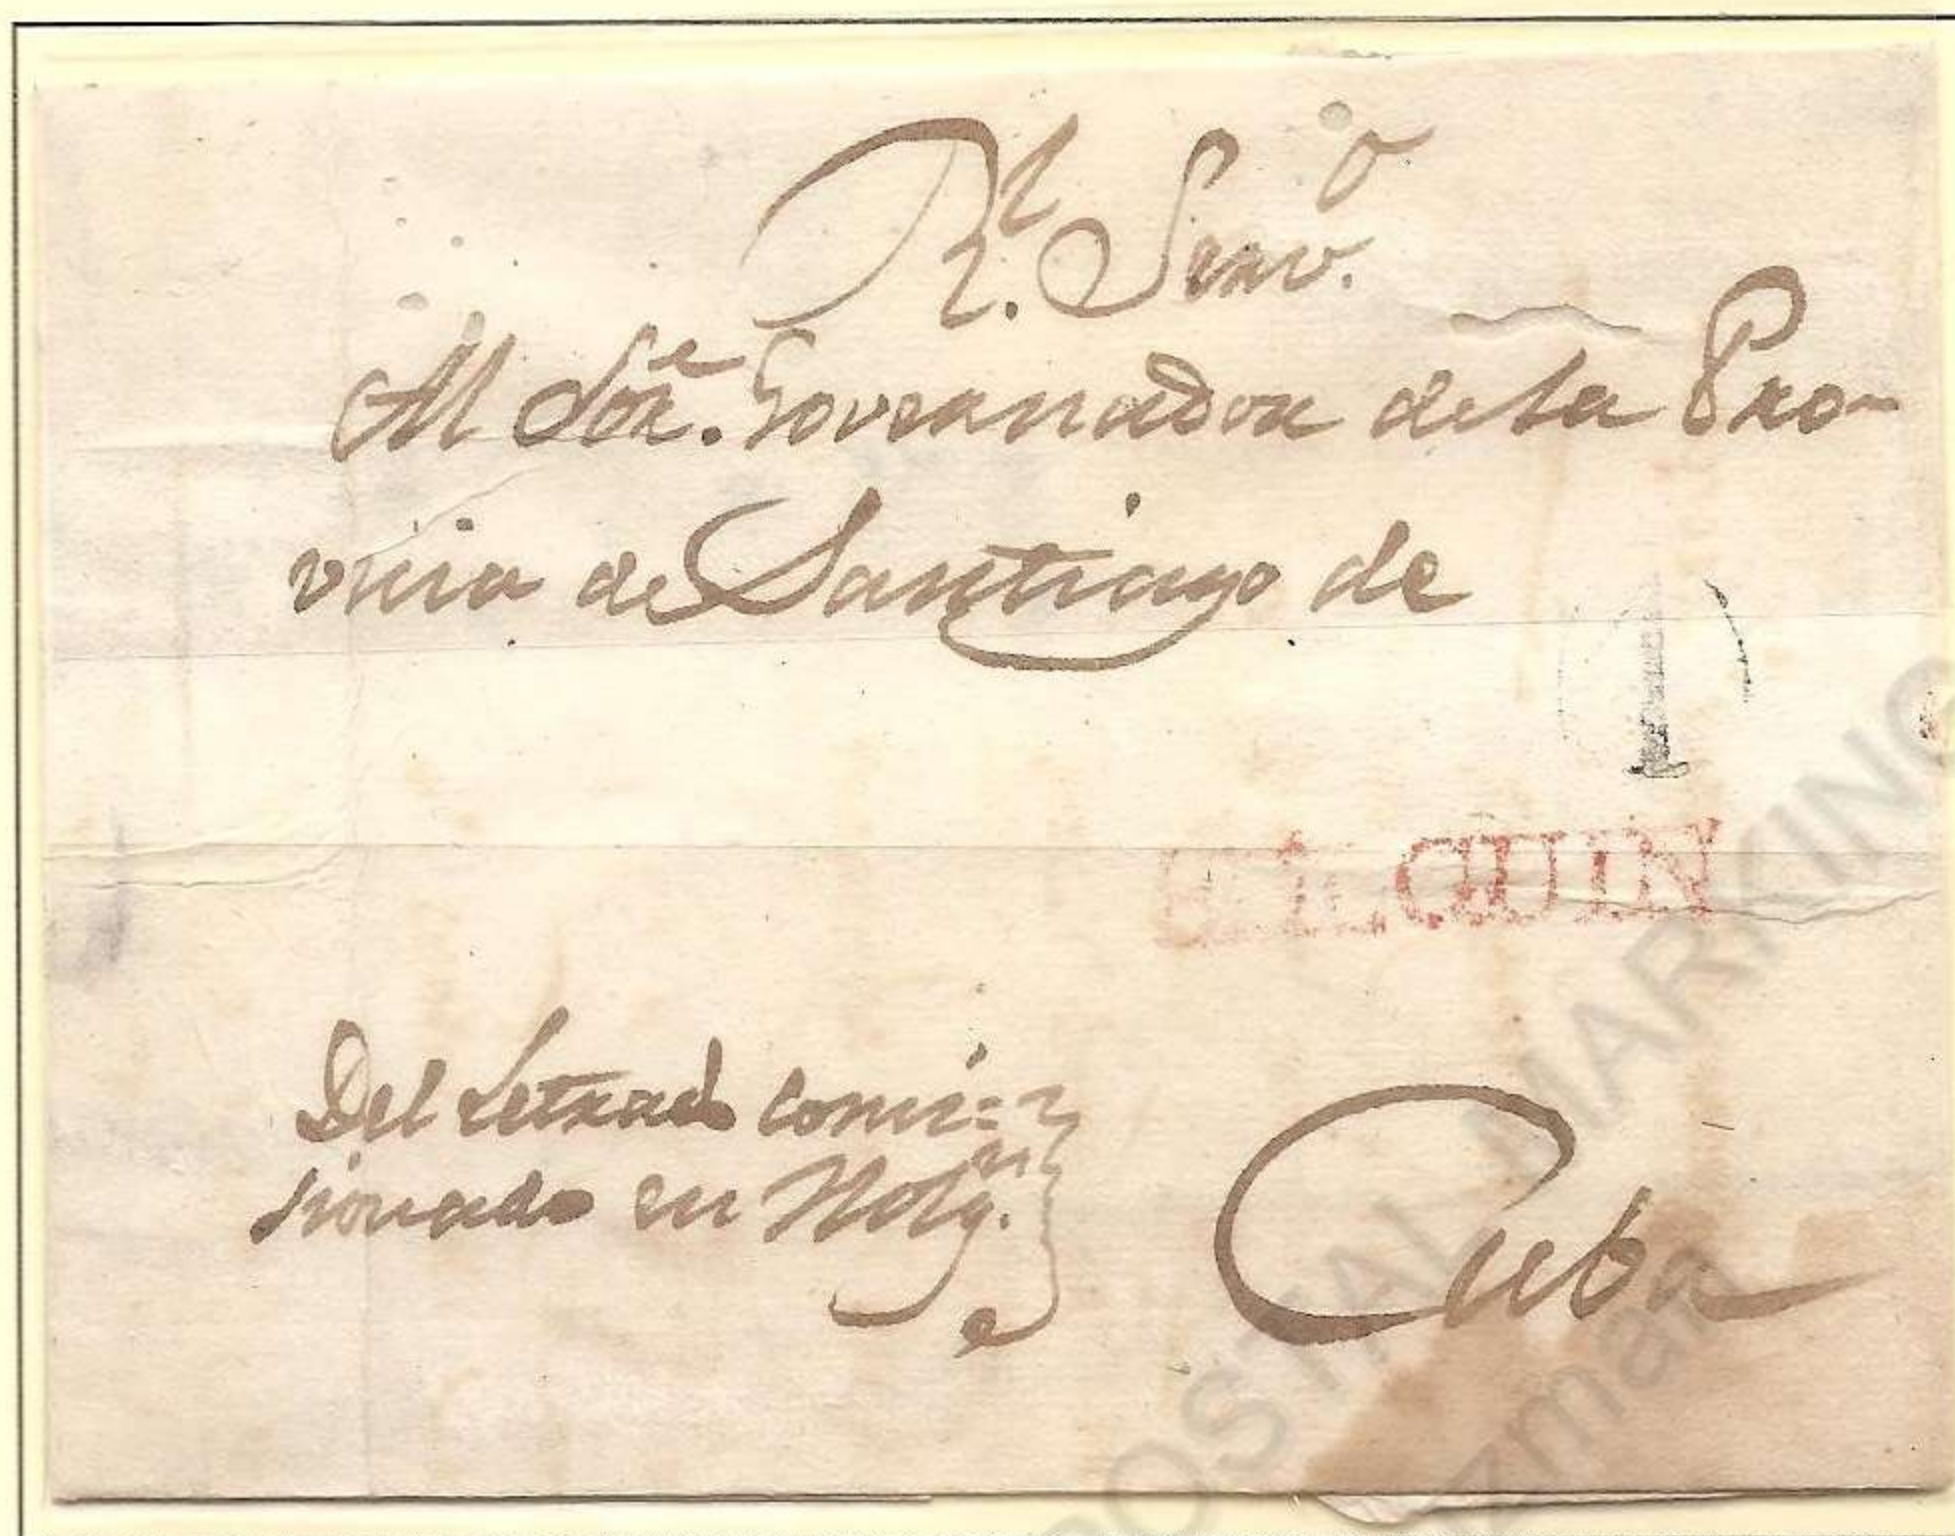 Rl. Servo.
Al Sore. Governador de la Pro-
vincia de Santiago de
1
OLGUIN
Del Letrado comi=
sionado en Holgn.
Cuba
POSTAL MARKING